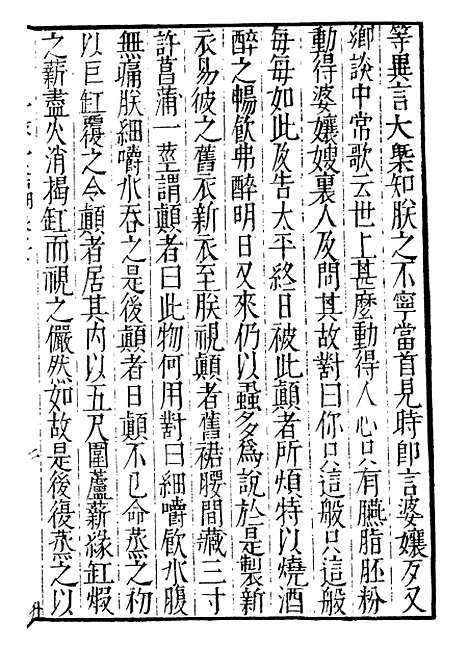 等異言大槩知朕之不寧當首見時即言婆孃歹又
鄉談中常歌云世上甚麽動得人心只有臙脂胚粉
動得婆孃嫂裏人及問其故對曰你只這般只這般
每每如此及告太平終日被此顛者所煩特以燒酒
醉之暢飲弗醉明日又來仍以蝨多爲說於是製新
衣易彼之舊衣新衣至朕視顛者舊裙腰間藏三寸
許菖蒲一莖謂顛者曰此物何用對曰細嚼飲水腹
無痛朕細嚼水吞之是後顛者日顛不已命蒸之初
以巨缸覆之令顛者居其內以五尺圍蘆薪緣缸煆
之薪盡火消揭缸而視之儼然如故是後復蒸之以